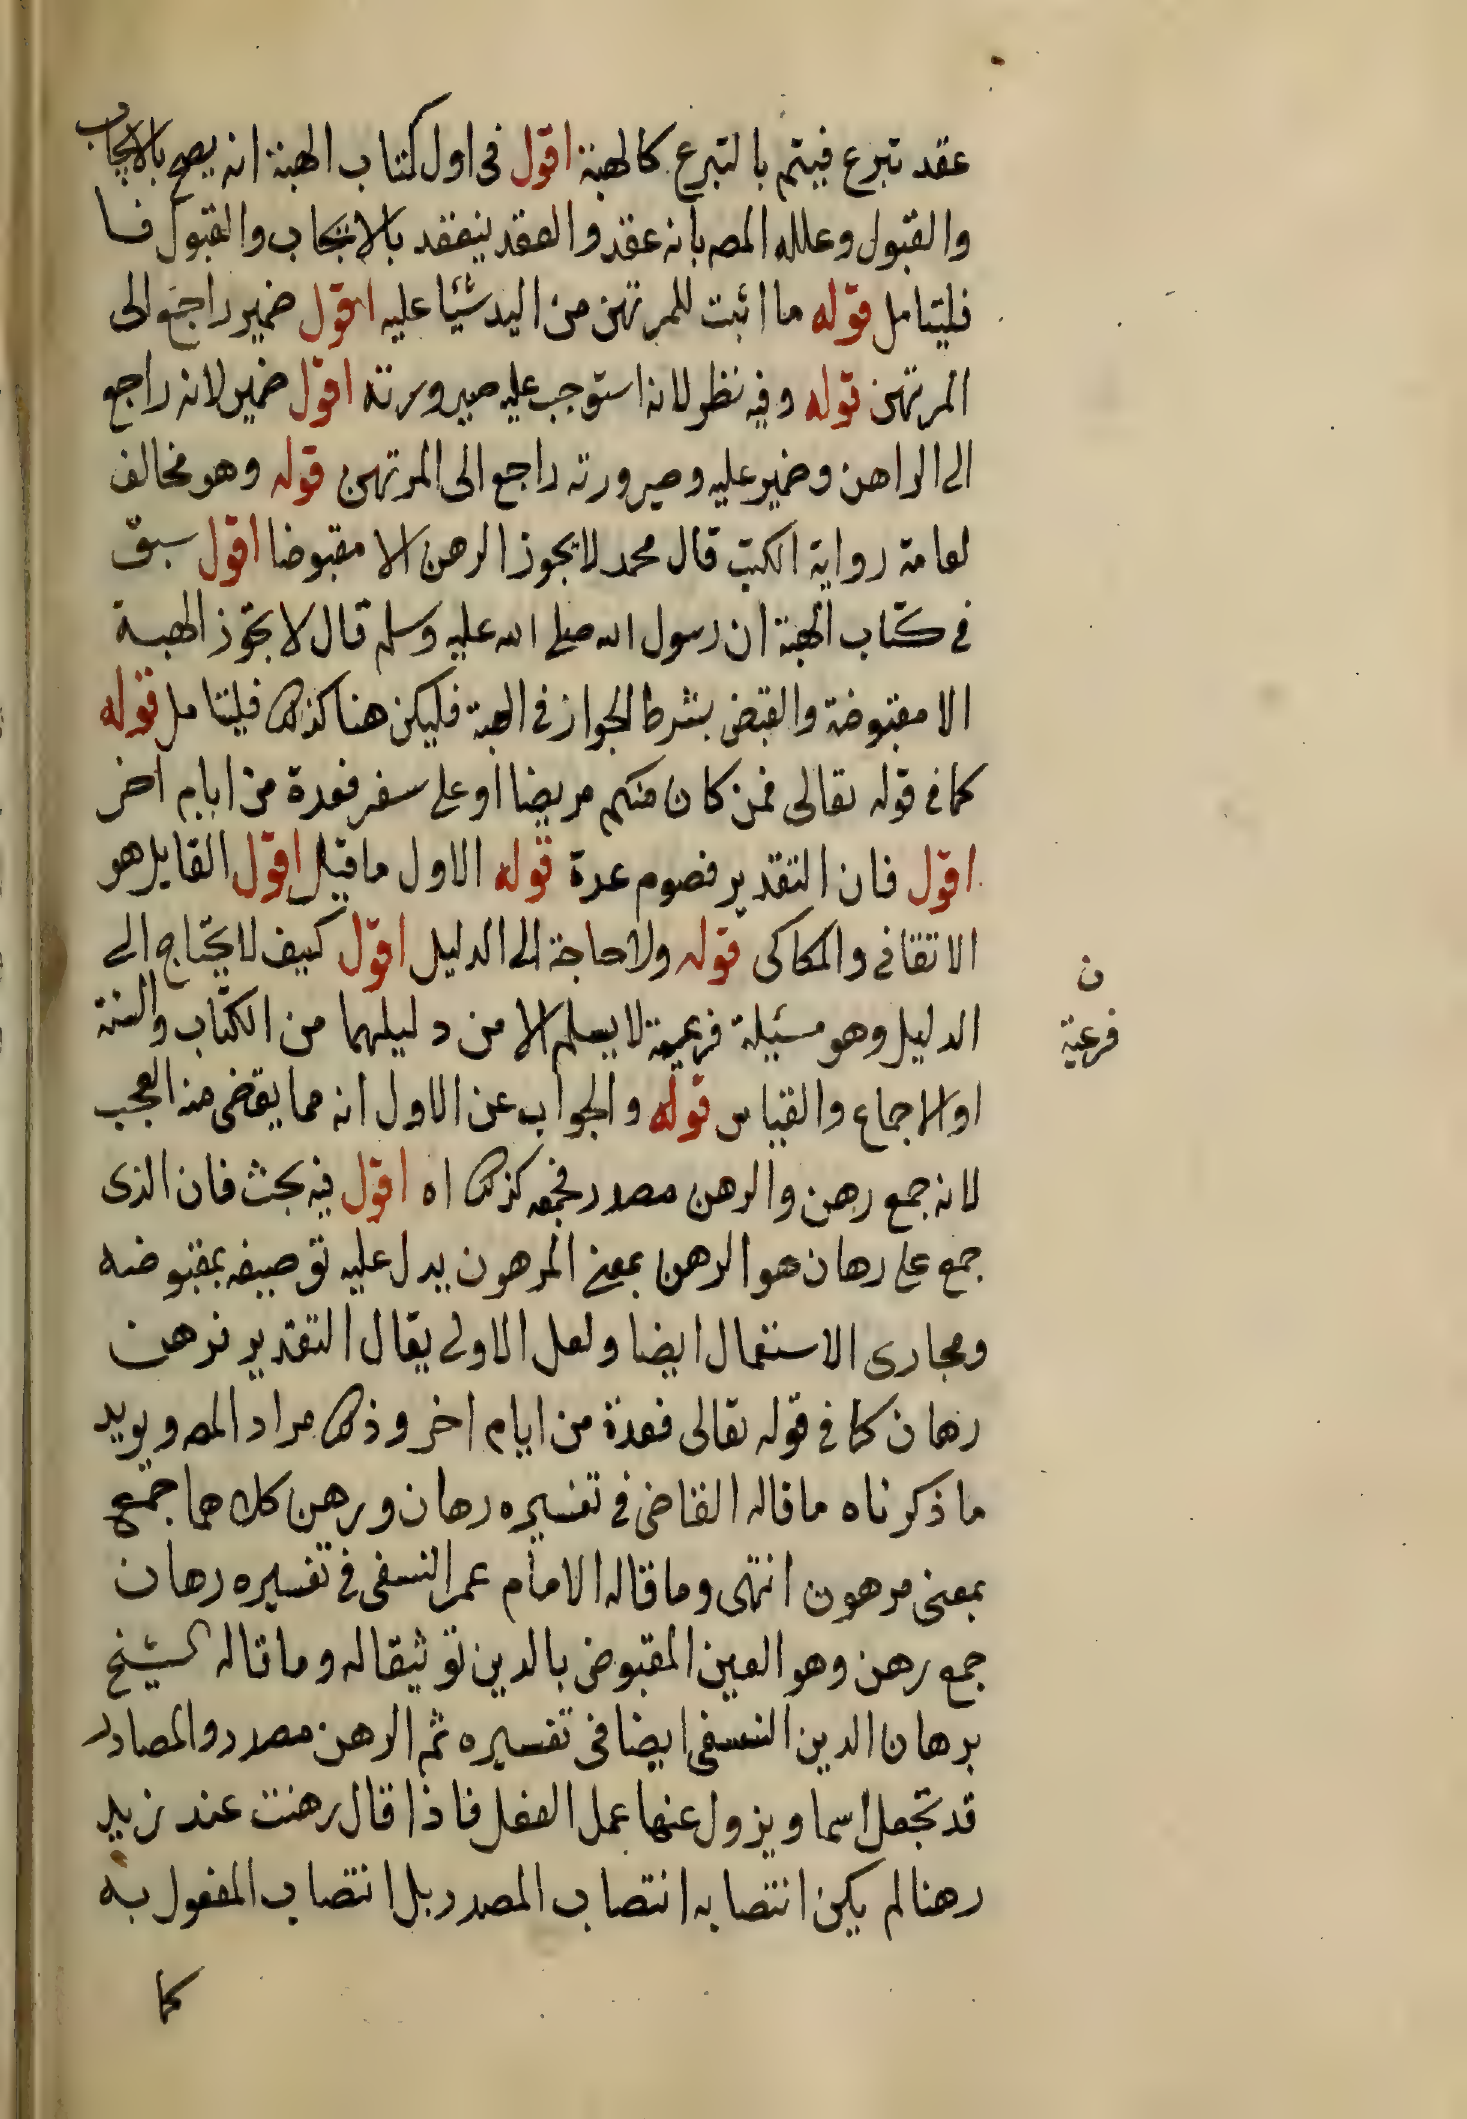 عقد تبرع فيتم بالتبرع كالهبة اقول فى اول كتاب الهبة انه يصح بالايجاب
والقبول وعلله المصـ بانه عقد والعقد ينعقد بالايجاب والقبول فـا
فليتامل قوله ما اثبت للمرتهن من اليد شيئا عليه اقول ضمير راجع الى
المرتهن قوله وفيه نظر لانه استوجب عليه صيرورته اقول ضمير لانه راجع
الى الراهن وضمير عليه وصيرورته راجع الى المرتهن قوله وهو مخالف
لعامة رواية الكتب قال محمد لا يجوز الرهن الا مقبوضا اقول سبق
فى كتاب الهبة ان رسول الله صلى الله عليه وسلم قال لا يجوز الهبة
الا مقبوضة والقبض بشرط الجواز فى الهبة فليكن هنا كذلك فليتامل قوله
كما فى قوله تعالى فمن كان منكم مريضا او على سفر فعدة من ايام اخر
اقول فان التقدير فصوم عدة قوله الاول ما قيل اقول القايل هو
الاتقانى والكاكى قوله ولا حاجة الى الدليل اقول كيف لا يحتاج الى
الدليل وهو مسئلة فرعية لا يسلم الا من دليلهما من الكتاب والسنة
ن
فرعية
او الاجماع والقياس قوله والجواب عن الاول انه مما يقضى منه العجب
لانه جمع رهن والرهن مصدر فجمعه كذلك اه اقول فيه بحث فان الذى
جمع على رهان هو الرهن بمعنى المرهون يدل عليه توصيفه بمقبوضه
ومجارى الاستعمال ايضا ولعل الاولى يقال التقدير فرهن
رهان كما فى قوله تعالى فعدة من ايام اخر وذلك مراد المصـ ويويد
ما ذكرناه ما قاله القاضى فى تفسيره رهان ورهن كلاهما جمع
بمعنى مرهون انتهى وما قاله الامام عمر النسفى فى تفسيره رهان
جمع رهن وهو العين المقبوض بالدين توثيقا له وما قاله الشيخ
برهان الدين النسفى ايضا فى تفسيره ثم الرهن مصدر والمصادر
قد تجعل اسما ويزول عنها عمل الفعل فاذا قال رهنت عند زيد
رهنا لم يكن انتصابه انتصاب المصدر بل انتصاب المفعول به
كما